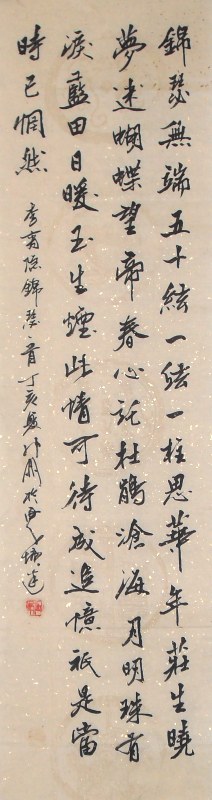 錦瑟無端五十絃一絃一柱思華年莊生曉
夢迷蝴蝶望帝春心託杜鵑滄海月明珠有
淚藍田日暖玉生煙此情可待成追憶祇是當
時已惘然
李商隱錦瑟一首丁亥